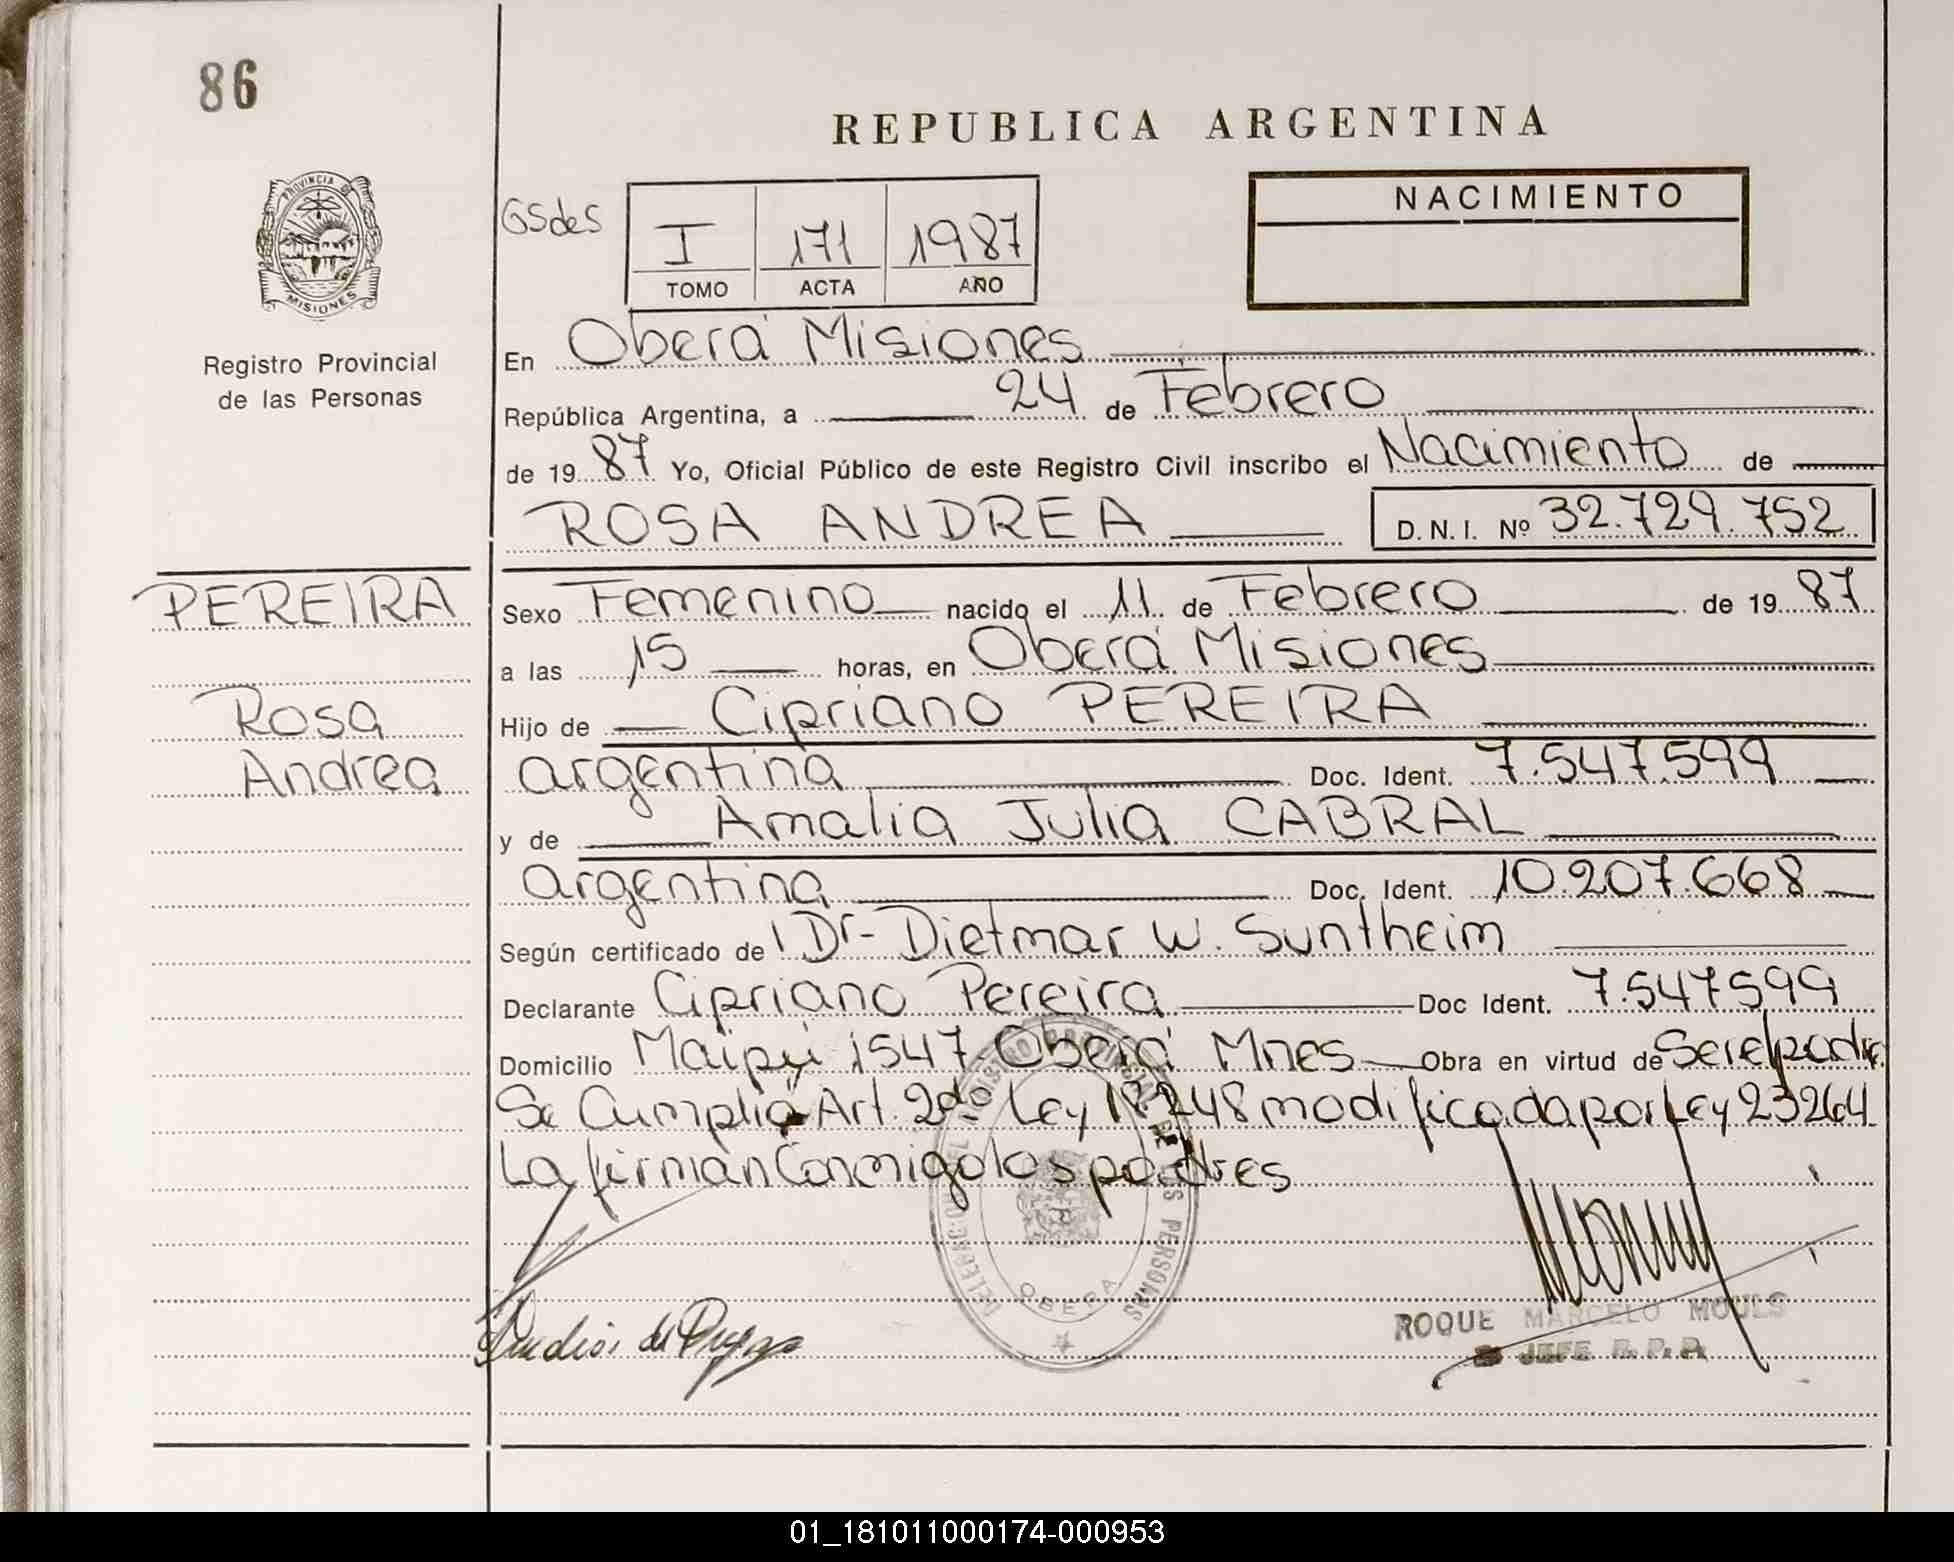 86
REPUBLICA ARGENTINA
NACIMIENTO
GSdeS
I 171 1987
TOMO ACTA AÑO
PROVINCIA DE
MISIONES
Registro Provincial
de las Personas
En Oberá Misiones
República Argentina, a 24 de Febrero
de 19 87 Yo, Oficial Público de este Registro Civil inscribo el Nacimiento de
ROSA ANDREA D.N.I. Nº 32.729.752
PEREIRA
Rosa
Andrea
Sexo Femenino nacido el 11 de Febrero de 19 87
a las 15 horas, en Oberá Misiones
Hijo de Cipriano PEREIRA
argentina Doc. Ident. 7.547.599
y de Amalia Julia CABRAL
argentina Doc. Ident. 10.207.668
Según certificado de Dr- Dietmar W. Suntheim
Declarante Cipriano Pereira Doc Ident. 7.547599
Domicilio Maipú 1547 Oberá Mnes Obra en virtud de Ser el padre
Se Cumplió Art. 2do Ley 18248 modificada por Ley 23264
La firman Conmigo los padres
OBERA
ROQUE MARCELO MOULS
JEFE R. P. P.
01_181011000174-000953